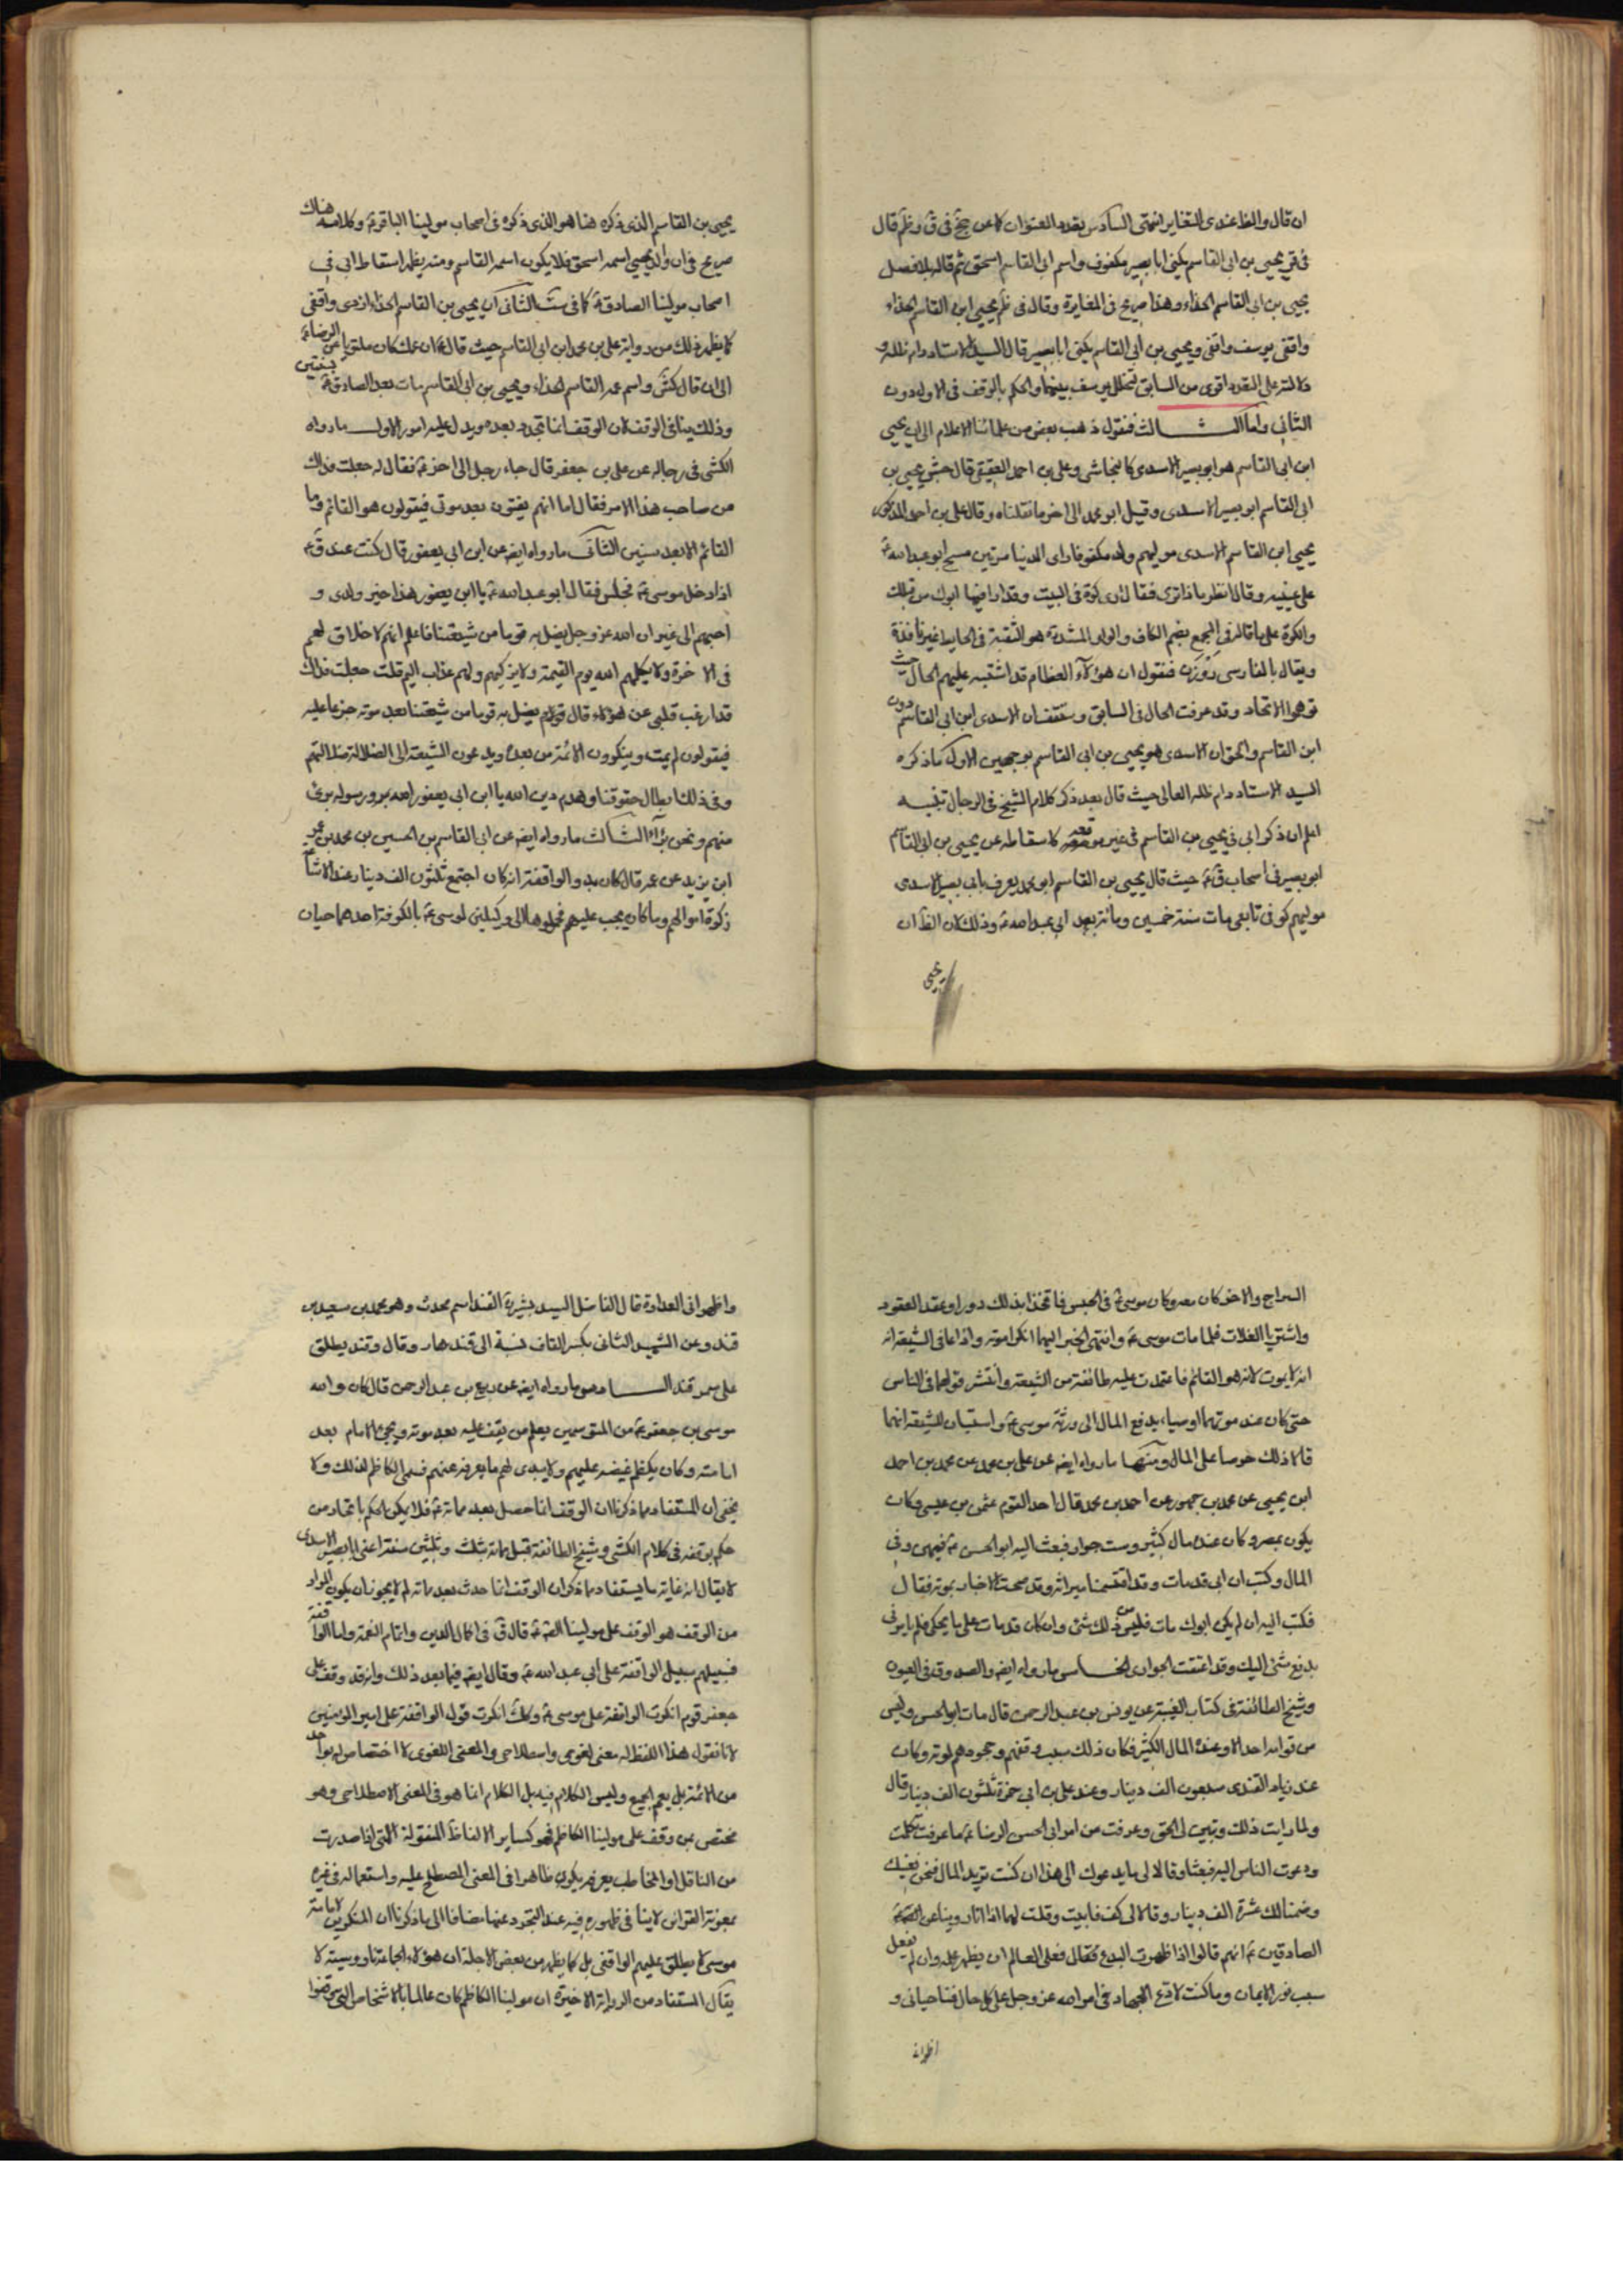 ان قال والظ عندى التغاير انتهى السادس تعدد العنوان كما عن جخ فى ق وظم قال
فى قر يحيى بن ابى القاسم يكنى ابا بصير مكفوف واسم ابى القاسم اسحق ثم قال بلا فصل
يحيى بن ابى القاسم الحذاء وهذا صريح فى المغايرة وقال فى ظم يحيى ابن القاسم الحذاء
واقفى يوسف واقفى ويحيى بن ابى القاسم يكنى ابا بصير قال السيد الاستاد دام ظله و
دلالته على التعدد اقوى من السابق لتخلل يوسف بينهما والحكم بالوقف فى الاول دون
الثانى واما الثالث فنقول ذهب بعض من علمائنا الاعلام الى ان يحيى
ابن ابى القاسم هو ابو بصير الاسدى كالنجاشى وعلى بن احمد العقيقى قال جش يحيى بن
ابى القاسم ابو بصير الاسدى وقيل ابو محمد الى اخر ما نقلناه وقال على بن احمد المذكور
يحيى ابن القاسم الاسدى مولاهم ولد مكفوفا راى الدنيا مرتين مسح ابو عبد الله ع
على عينيه وقال انظر ما ذا ترى فقال ارى كوة فى البيت وقد ارانيها ابوك من قبلك
والكوة على ما قاله فى المجمع بضم الكاف والواو المشددة هو الثقبة فى الحايط غير نافذة
ويقال بالفارسى روزن فنقول ان هؤلاء العظام قد اشتبه عليهم الحال حيث
توهموا الاتحاد وقد عرفت الحال فى السابق وستقف ان الاسدى ابن ابى القاسم دون
ابن القاسم والحق ان الاسدى هو يحيى بن ابى القاسم بوجهين الاول ما ذكره
السيد الاستاد دام ظله العالى حيث قال بعد ذكر كلام الشيخ فى الرجال تنبيه
اعلم ان ذكر ابى فى يحيى بن القاسم فى غير موقعه كاسقاطه عن يحيى بن ابى القاسم
ابو بصير فى اصحاب ق ع حيث قال يحيى بن القاسم ابو محمد يعرف بابى بصير الاسدى
مولاهم كوفى تابعى مات سنة خمسين ومائة بعد ابى عبد الله ع وذلك لان الظ ان
يحيى
يحيى بن القاسم الذى ذكره هنا هو الذى ذكره فى اصحاب مولينا الباقر ع وكلامه هناك
صريح فى ان والد يحيى اسمه اسحق فلا يكون اسمه القاسم ومنه يظهر اسقاط ابى فى
اصحاب مولينا الصادق ع كما فى ست الثانى ان يحيى بن القاسم الحذاء ازدى واقفى
كما يظهر ذلك من رواية على بن محمد ابن ابى القاسم حيث قال ان عمك كان ملتويا عن الرضا ع
الى ان قال كش واسم عمه القاسم الحذاء ويحيى بن ابى القاسم مات بعد الصادق ع بسنتين
وذلك ينافى الوقف لان الوقف انما تجدد بعده ويدل عليه امور الاول ما رواه
الكشى فى رجاله عن على بن جعفر قال جاء رجل الى اخى ع فقال له جعلت فداك
من صاحب هذا الامر فقال اما انهم يفتنون بعد موتى فيقولون هو القائم وما
القائم الا بعد سنين الثانى ما رواه ايضا عن ابن ابى يعفور قال كنت عند ق ع
اذا دخل موسى ع فجلس فقال ابو عبد الله ع يا ابن يعفور هذا خير ولدى و
احبهم الى غير ان الله عز وجل يضل به قوما من شيعتنا فاعلم انهم لا خلاق لهم
فى الاخرة ولا يكلمهم الله يوم القيمة ولا يزكيهم ولهم عذاب اليم قلت جعلت فداك
قد ارغب قلبى عن هؤلاء قال قوم يضل به قوما من شيعتنا بعد موته جزعا عليه
فيقولون لم يمت وينكرون الائمة من بعده ويدعون الشيعة الى الضلالة
وفى ذلك ابطال حقوقنا وهدم دين الله يا ابن ابى يعفور الله ورسوله برئ
منهم ونحن براء الثالث ما رواه ايضا عن ابى القاسم بن الحسين بن محمد بن عمر
ابن يزيد عن عمه قال كان بدو الواقفة انه كان اجتمع ثلثون الف دينار عند
زكوة اموالهم وما كان يجب عليهم فحملوها الى وكيلين لموسى ع بالكوفة احدهما حيان
السراج والاخر كان معه وكان موسى ع فى الحبس فاتخذا بذلك دورا وعقد العقود
واشتريا الغلات فلما مات موسى ع وانتهى الخبر اليهما انكرا موته واذاعا فى الشيعة انه
انه لا يموت لانه هو القائم فاعتمدت عليه طائفة من الشيعة وانتشر قولهما فى الناس
حتى كان عند موتهما اوصيا بدفع المال الى ورثة موسى ع واستبان للشيعة انهما
قالا ذلك حرصا على المال ومنها ما رواه ايضا عن على بن محمد عن محمد بن احمد
ابن يحيى عن محمد بن جمهور عن احمد بن محمد قال احد القوم عثمن بن عيسى وكان
يكون بمصر وكان عنده مال كثير وست جوار فبعث اليه ابو الحسن ع فيهن وفى
المال وكتب ان ابى قد مات وقد اقتسمنا ميراثه وقد صحت الاخبار بموته فقال
فكتب اليه ان لم يكن ابوك مات فليس من ذلك شئ وان كان قد مات على ما يحكى فلم يامرنى
بدفع شئ اليك وقد اعتقت الجوارى الخامس ما رواه ايضا والصدوق فى العيون
وشيخ الطائفة فى كتاب الغيبة عن يونس بن عبد الرحمن قال مات ابو الحسن وليس
من قوامه احد الا وعنده المال الكثير فكان ذلك سبب وقفهم وجحودهم لموته وكان
عند زياد القندى سبعون الف دينار وعند على بن ابى حمزة ثلثون الف دينار قال
ولما رايت ذلك وتبين لى الحق وعرفت من امر ابى الحسن الرضا ع ما عرفت تكلمت
ودعوت الناس اليه فبعثا وقالا لى ما يدعوك الى هذا ان كنت تريد المال فنحن نغنيك
وضمنا لك عشرة الف دينار وقالا لى كف فابيت وقلت لهما انا روينا عن
الصادقين ع انهم قالوا اذا ظهرت البدع فعلى العالم ان يظهر علمه وان لم يفعل
سبب نور الايمان وما كنت لادع الجهاد فى امر الله عز وجل على كل حال فناصبانى و
اظهرا
واظهرا لى العداوة قال الفاضل السيد بشرية القند اسم محدث وهو محمد بن سعيد بن
قند وعن الشهيد الثانى بكسر القاف نسبة الى قندهار وقال وقند يطلق
على سمرقند السادس ما رواه ايضا عن ربيع بن عبد الرحمن قال كان والله
موسى بن جعفر ع من المتوسمين يعلم من يقف عليه بعد موته ويجحد الامام بعد
امامته وكان يكظم غيضه عليهم ولا يبدى لهم ما يعرفه عنهم فسمى الكاظم لذلك ولا
يخفى ان المستفاد مما ذكرنا ان الوقف انما حصل بعد مماته ع فلا يمكن الحكم باتحاد من
حكم بوقفه فى كلام الكشى وشيخ الطائفة قبل مماته بثلث وثلثين سنة اعنى ابا بصير الاسدى
لا يقال انه غاية ما يستفاد مما ذكر ان الوقف انما حدث بعد مماته لم لا يجوز ان يكون المراد
من الوقف هو الوقف على مولينا الصادق ع قال ق فى اكمال الدين واتمام النعمة واما الواقفة
فسبيلهم سبيل الواقفة على ابى عبد الله ع وقال ايضا فيما بعد ذلك وانه قد وقف على
جعفر قوم انكرت الواقفة على موسى ع وكك انكرت قول الواقفة على امير المومنين
لانا نقول هذا اللفظ له معنى لغوى واصطلاحى والمعنى اللغوى لا اختصاص له بواحد
من الائمة بل يعم الجميع وليس الكلام فيه بل الكلام انما هو فى المعنى الاصطلاحى وهو
مختص بمن وقف على مولينا الكاظم فهو كساير الالفاظ المنقولة التى اذا صدرت
من الناقل او المخاطب بعرفه يكون ظاهرا فى المعنى المصطلح عليه واستعماله فى غيره
بمعونة القرائن لا ينافى ظهوره فيه عند التجرد عنها مضافا الى ما ذكرنا ان المنكرين لامامة
موسى لا يطلق عليهم الواقفى بل كما يظهر من بعض الاجلة ان هؤلاء الجماعة ناووسية لا
يقال المستفاد من الرواية الاخيرة ان مولينا الكاظم كان عالما بالاشخاص التى وقفوا